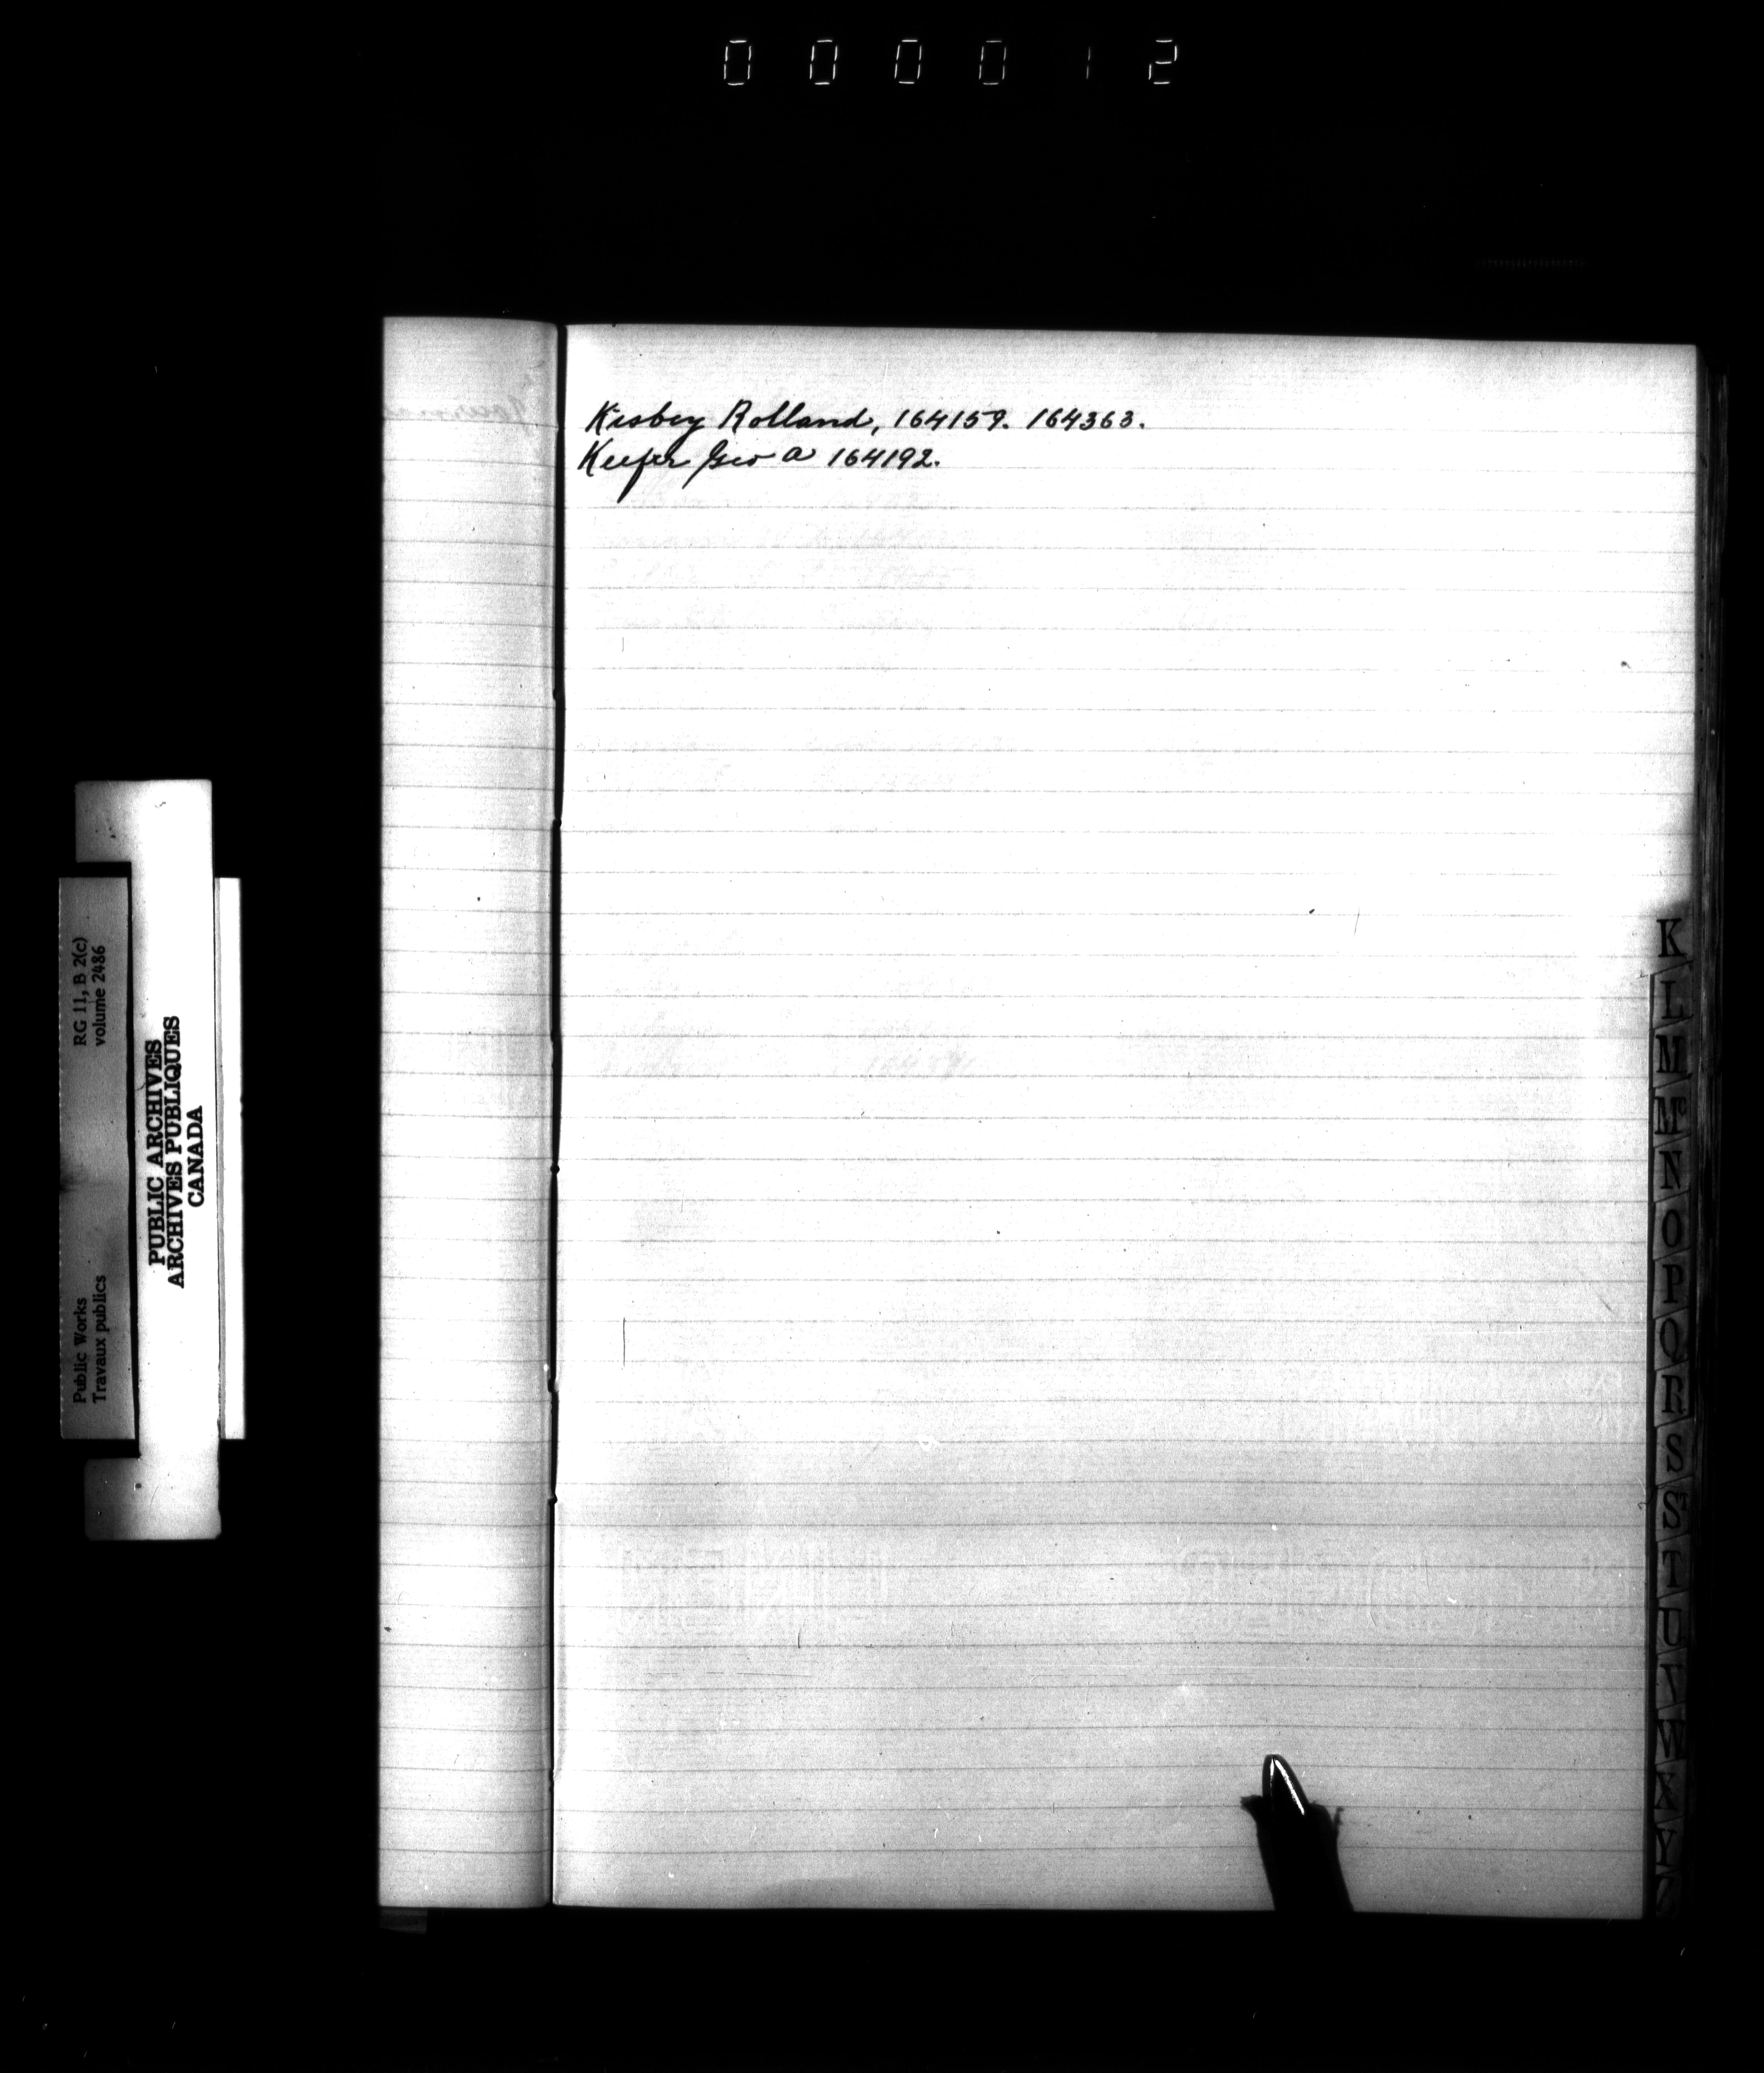 000012
Kisbey Rolland, 164159. 164363.
Keefer Geo A 164192.
K
L
M
Mc
N
O
P
Q
R
S
ST
T
U
V
W
X
Y
Public Works RG 11, B 2(c)
Travaux publics volume 2486
PUBLIC ARCHIVES
ARCHIVES PUBLIQUES
CANADA